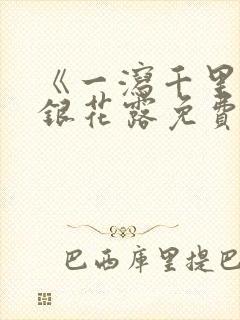 《一瀉千里
銀花露免費
巴西库里提巴